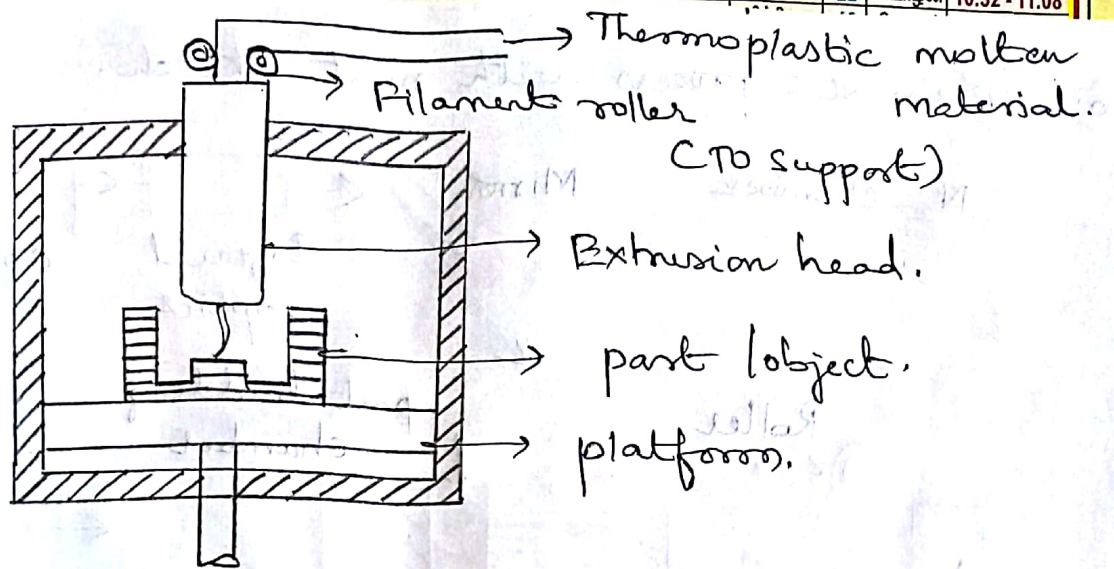 10:52 - 11:08
Thermoplastic molten
material.
Filament roller
(TO support)
Extrusion head.
part / object.
platform.
Roller